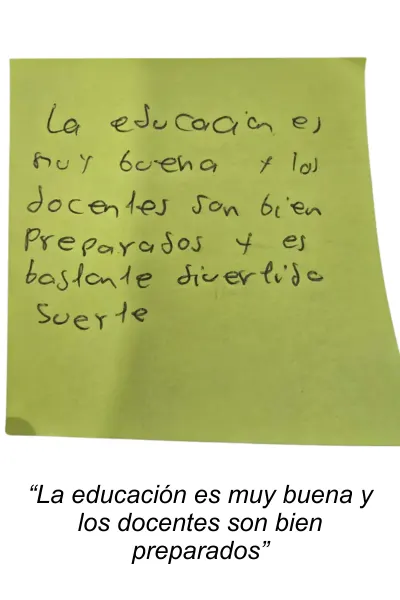 La educación es
muy buena y los
docentes son bien
preparados y es
bastante divertido
suerte
“La educación es muy buena y
los docentes son bien
preparados”